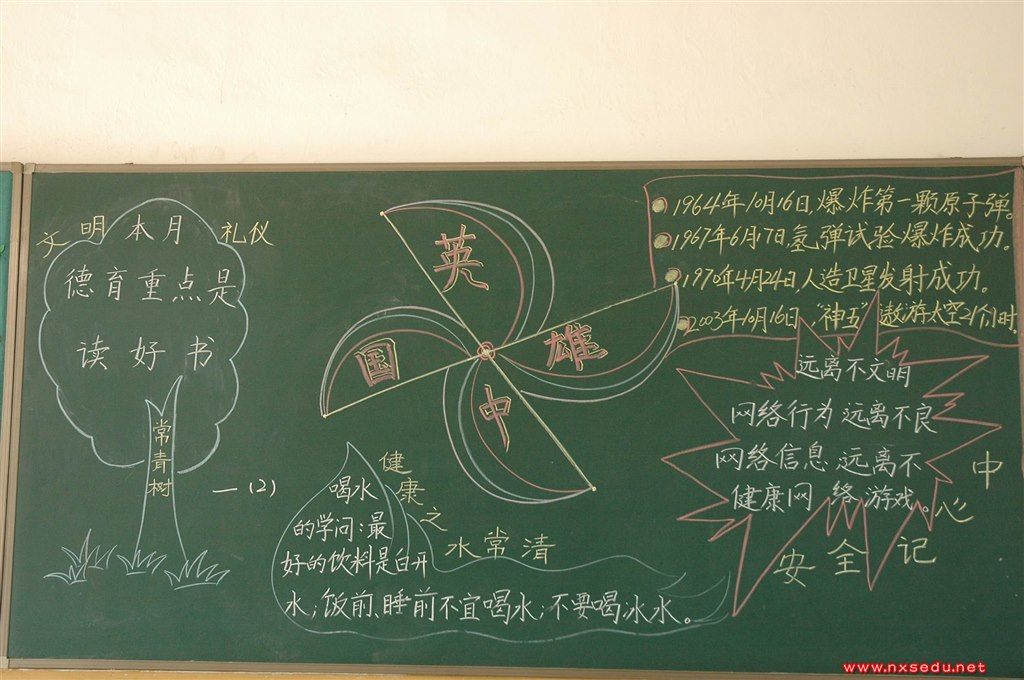 文明 本月 礼仪
德育重点是
读好书
常青树
一(2)
英
雄
中
国
1964年10月16日,爆炸第一颗原子弹。
1967年6月17日,氢弹试验爆炸成功。
1970年4月24日,人造卫星发射成功。
2003年10月16日,“神五”遨游太空21小时.
远离不文明
网络行为 远离不良
网络信息 远离不
健康网络游戏。
安全记心中
健康之
水常清
喝水
的学问:最
好的饮料是白开
水;饭前、睡前不宜喝水;不要喝冰水。
www.nxsedu.net